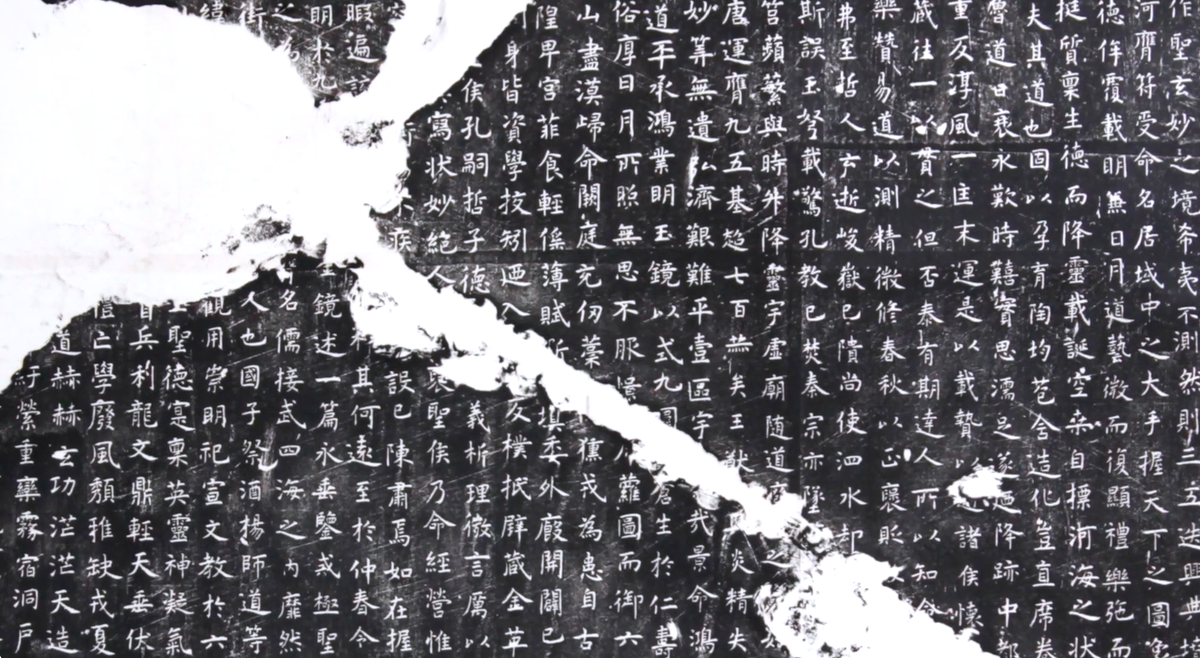 作聖玄妙之境希夷不測然則三五迭興典墳
河齊符受命名居域中之大手握天下之圖
德侔覆載明無日月道藝微而復顯禮樂弛而
挺質稟生德而降靈載誕空桑自摽河海之狀
夫其道也固以孕育陶均苞含造化豈直席卷
魯道日衰永歎時囏實思濡足遂迺降跡中都
重反淳風一匡末運是以載贄以適諸侯懷
藏往一以貫之但否泰有期達人所以知
樂贊易道以測精微修春秋以正襃貶
弗至哲人云逝峻嶽已隤尚使泗水却
斯誤玉弩載驚孔教已焚秦宗亦墜
筥蘋蘩與時升降靈宇虛廟隨道
膺運齊九五基超七百赫矣王猷 炎精失
妙筭無遺弘濟艱難平壹區宇 景命鴻
道平承鴻業明玉鏡以式九 蒼生於仁壽
俗厚日月所照無思不服憬 蘿圖而御六
山盡漠歸命闕庭充仞藁 獯戎為患自古
隍卑宮菲食輕徭薄賦 填委外廄閑闢已
身皆資學挍矧迺入 反樸抵璧藏金革
侯孔嗣哲子德 義析理微言厲以
寫狀妙絕人 聖侯乃命經營惟
設已陳肅焉如在握
暇遍 其何遠至於仲春令
明於九 鏡述一篇永垂鑒戒極聖
之 名儒接武四海之內靡然
街 人也國子祭酒楊師道等
觀用崇明祀宣文教於六
聖德寔稟英靈神凝氣
兵利龍文鼎輕天垂伏
亡學廢風頹雅缺戎夏
道赫赫玄功茫茫天造
紆縈重欒霧宿洞戶